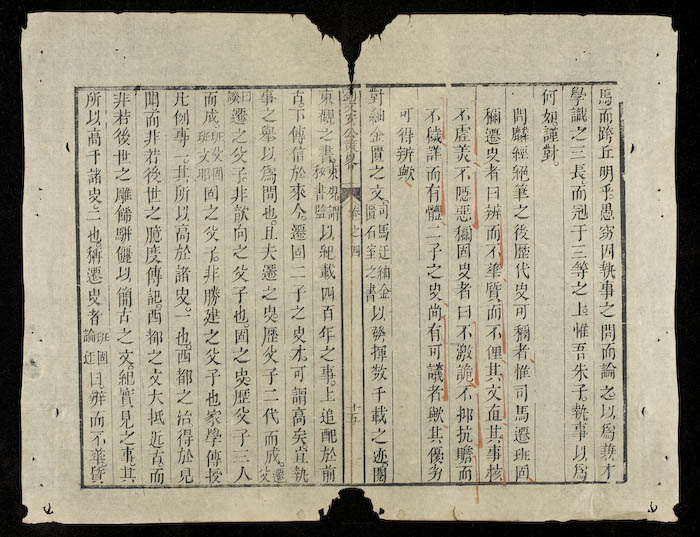 馬而跨丘明乎愚竊因執事之問而論之以爲兼才
學識之三長而冠于三等之上惟吾朱子執事以爲
何如謹對
問麟經絕筆之後歷代史可稱者惟司馬遷班固
稱遷史者曰辨而不華質而不俚其文直其事核
不虛美不隱惡稱固史者曰不激詭不抑抗贍而
不穢詳而有體二子之史尚有可議者歟其優劣
可得辨歟
對紬金匱之文司馬迁紬金匱石室之書以發揮数千載之迹
卷之四
十五
東觀之書東觀謂秘書監以紀載四百年之事上追配於前
古下傳信於來今遷固二子之史才可謂高矣豈執
事之舉以爲問也且夫遷之史歷父子二代而成遷父
曰談遷之父子非歆向之父子也固之史歷父子三人
而成固之父子非勝建之父子也家學傳授
凡例專一其所以高於諸史一也西都之治得於見
聞而非若後世之臆度傳記西都之文大抵近古而
非若後世之雕餙駢儷以簡古之文紀實見之事其
所以高于諸史二也稱遷史者班固論迁曰辨而不華質